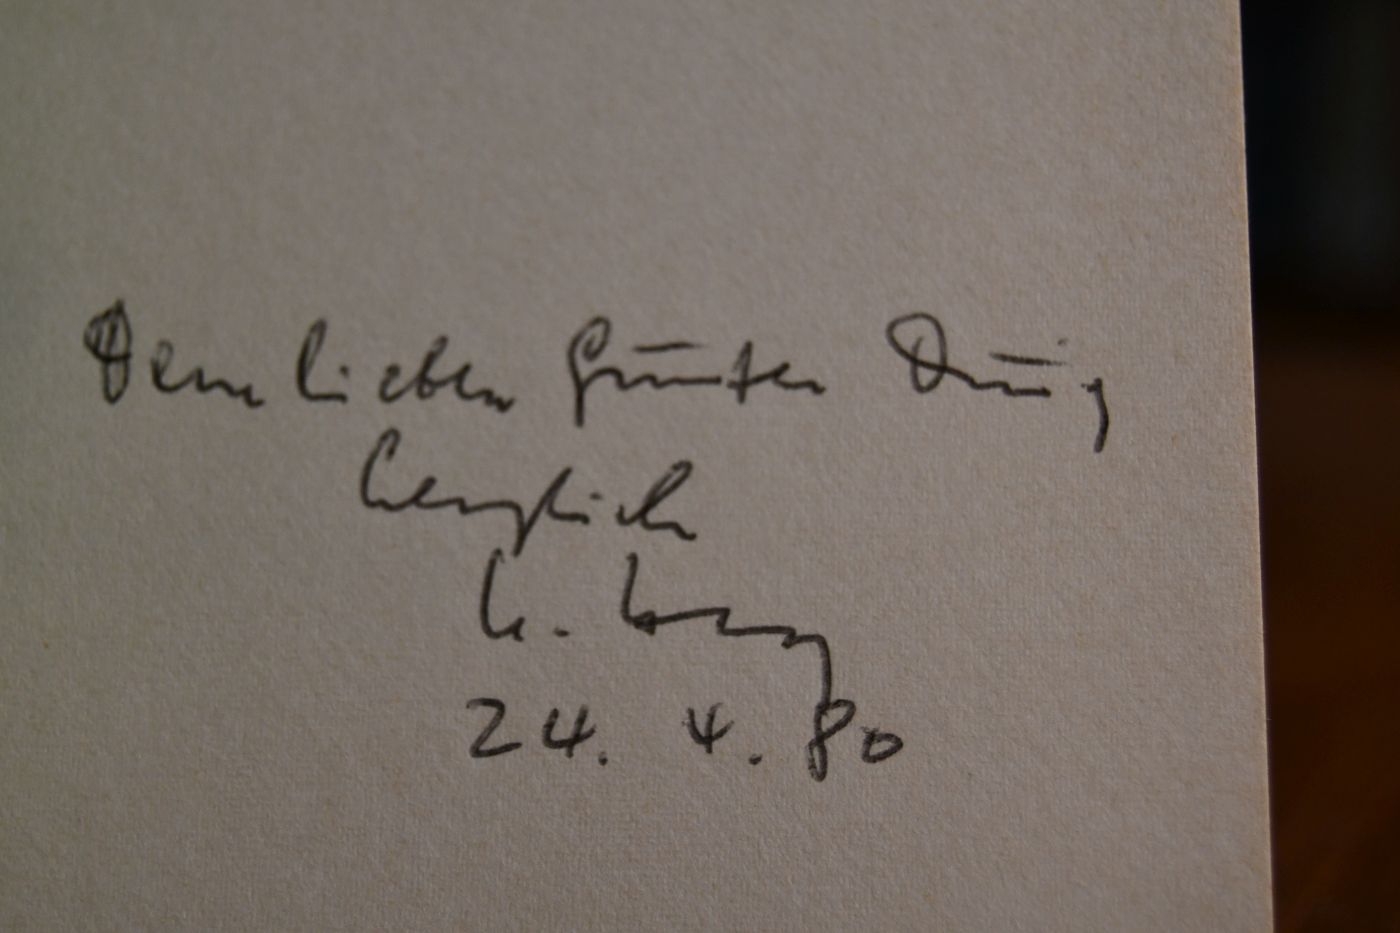 Dem lieben Günter Dürig
herzlich
24. 4. 80